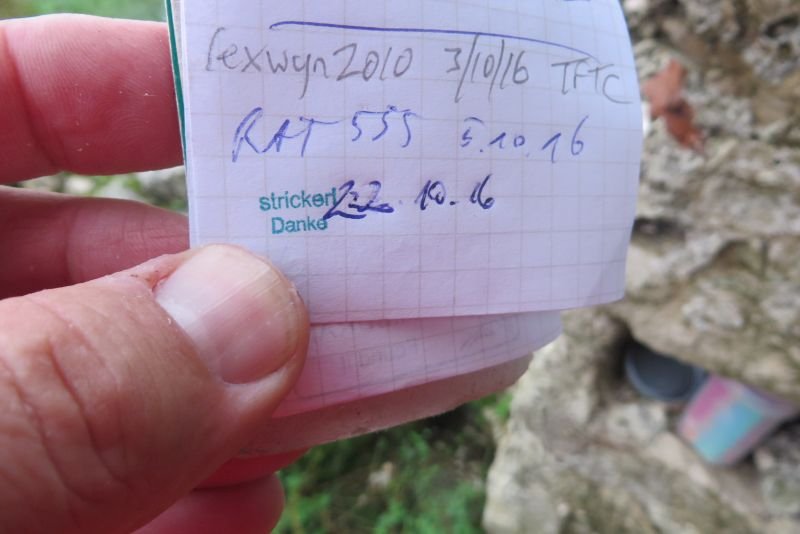 lexwyn2010 3/10/16 TFTC
RAT 555 5.10.16
strickerl 22.10.16
Danke